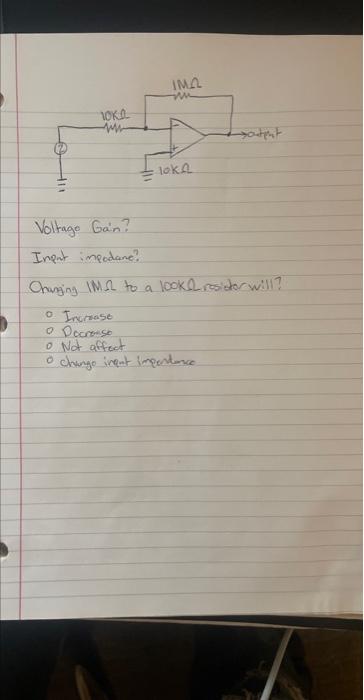 1MΩ
10KΩ
-
→output
+
10KΩ
Voltage Gain?
Input impedane?
Changing 1MΩ to a 100KΩ resistor will?
o Increase
o Decrease
o Not affect
o change input impendance